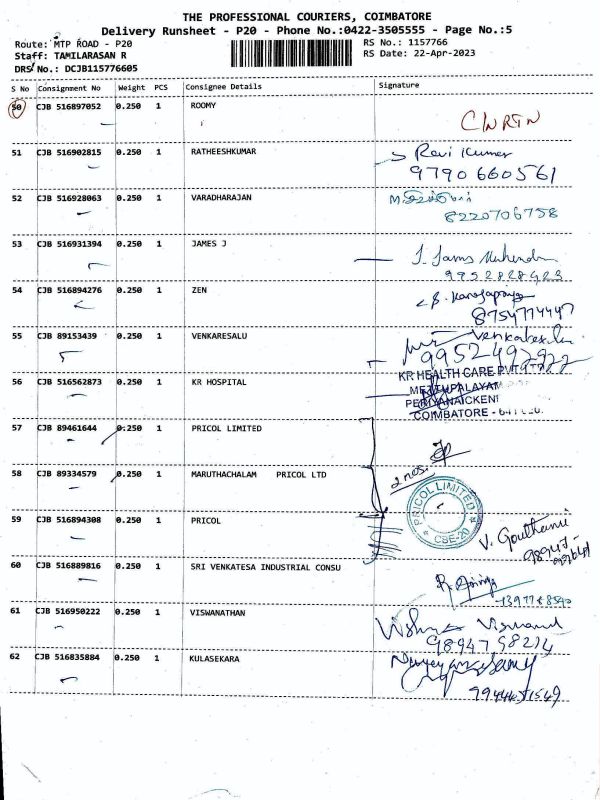 THE PROFESSIONAL COURIERS, COIMBATORE
Delivery Runsheet - P20 - Phone No.:0422-3505555 - Page No.:5
Route: MTP ROAD - P20
RS No.: 1157766
Staff: TAMILARASAN R
RS Date: 22-Apr-2023
DRS No.: DCJB115776605
S No Consignment No Weight PCS Consignee Details Signature
50 CJB 516897052 0.250 1 ROOMY
51 CJB 516902815 0.250 1 RATHEESHKUMAR Ravi Kumar
9790660561
52 CJB 516928063 0.250 1 VARADHARAJAN
8220706758
53 CJB 516931394 0.250 1 JAMES J
54 CJB 516894276 0.250 1 ZEN
8754774447
55 CJB 89153439 0.250 1 VENKARESALU
9952492922
KR HEALTH CARE PVT LTD
56 CJB 516562873 0.250 1 KR HOSPITAL METTUPALAYAM
PERIYANAICKEN
COIMBATORE -
57 CJB 89461644 0.250 1 PRICOL LIMITED
2 nos.
58 CJB 89334579 0.250 1 MARUTHACHALAM PRICOL LTD
PRICOL LIMITED
CBE-20
59 CJB 516894308 0.250 1 PRICOL
V. Gouthami
60 CJB 516889816 0.250 1 SRI VENKATESA INDUSTRIAL CONSU
61 CJB 516950222 0.250 1 VISWANATHAN
98947 98214
62 CJB 516835884 0.250 1 KULASEKARA